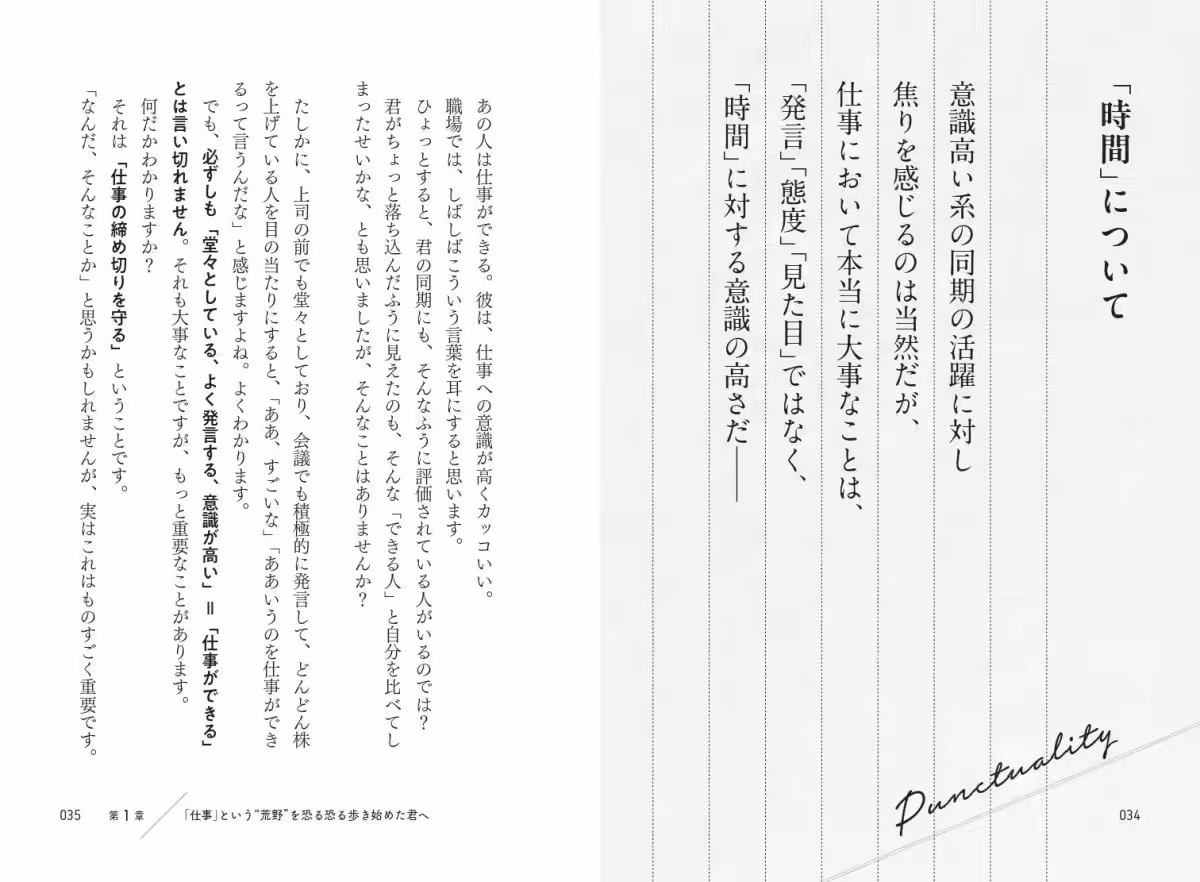 「時間」について
意識高い系の同期の活躍に対し
焦りを感じるのは当然だが、
仕事において本当に大事なことは、
「発言」「態度」「見た目」ではなく、
「時間」に対する意識の高さだ——
Punctuality
034
あの人は仕事ができる。彼は、仕事への意識が高くカッコいい。
職場では、しばしばこういう言葉を耳にすると思います。
ひょっとすると、君の同期にも、そんなふうに評価されている人がいるのでは？
君がちょっと落ち込んだふうに見えたのも、そんな「できる人」と自分を比べてし
まったせいかな、とも思いましたが、そんなことはありませんか？
たしかに、上司の前でも堂々としており、会議でも積極的に発言して、どんどん株
を上げている人を目の当たりにすると、「ああ、すごいな」「ああいうのを仕事ができ
るって言うんだな」と感じますよね。よくわかります。
でも、必ずしも「堂々としている、よく発言する、意識が高い」＝「仕事ができる」
とは言い切れません。それも大事なことですが、もっと重要なことがあります。
何だかわかりますか？
それは「仕事の締め切りを守る」ということです。
「なんだ、そんなことか」と思うかもしれませんが、実はこれはものすごく重要です。
035 第1章 「仕事」という“荒野”を恐る恐る歩き始めた君へ